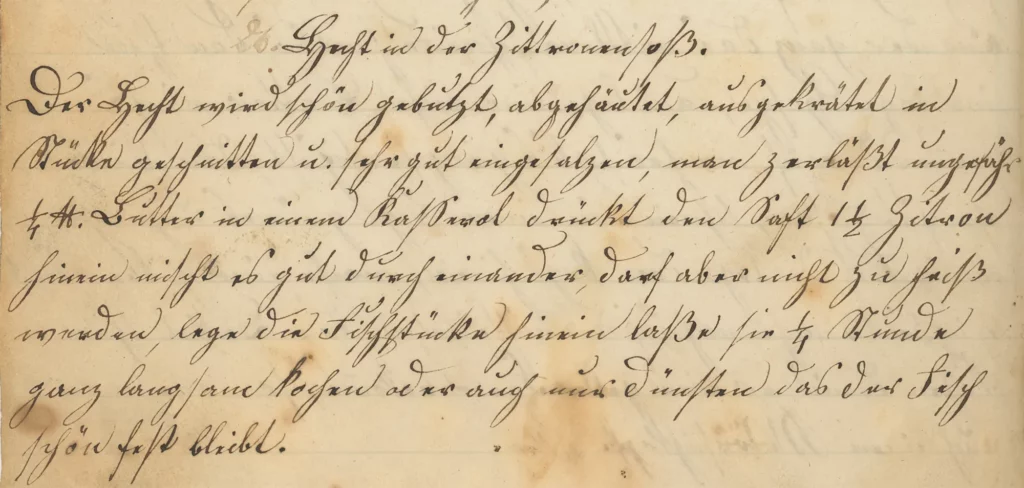 Hecht in der Zittronensoß.
Der Hecht wird schön gebutzt, abgehäutet, ausgekrätet in
Stücke geschnitten u. sehr gut eingesalzen, man zerläßt ungefähr
¼ ℔. Butter in einem Kasserol drückt den Saft 1½ Zitron
hinein mischt es gut durch einander, darf aber nicht zu heiß
werden, lege die Fischstücke hinein laße sie ¼ Stunde
ganz langsam kochen oder auch nur dünsten das der Fisch
schön fest bleibt.